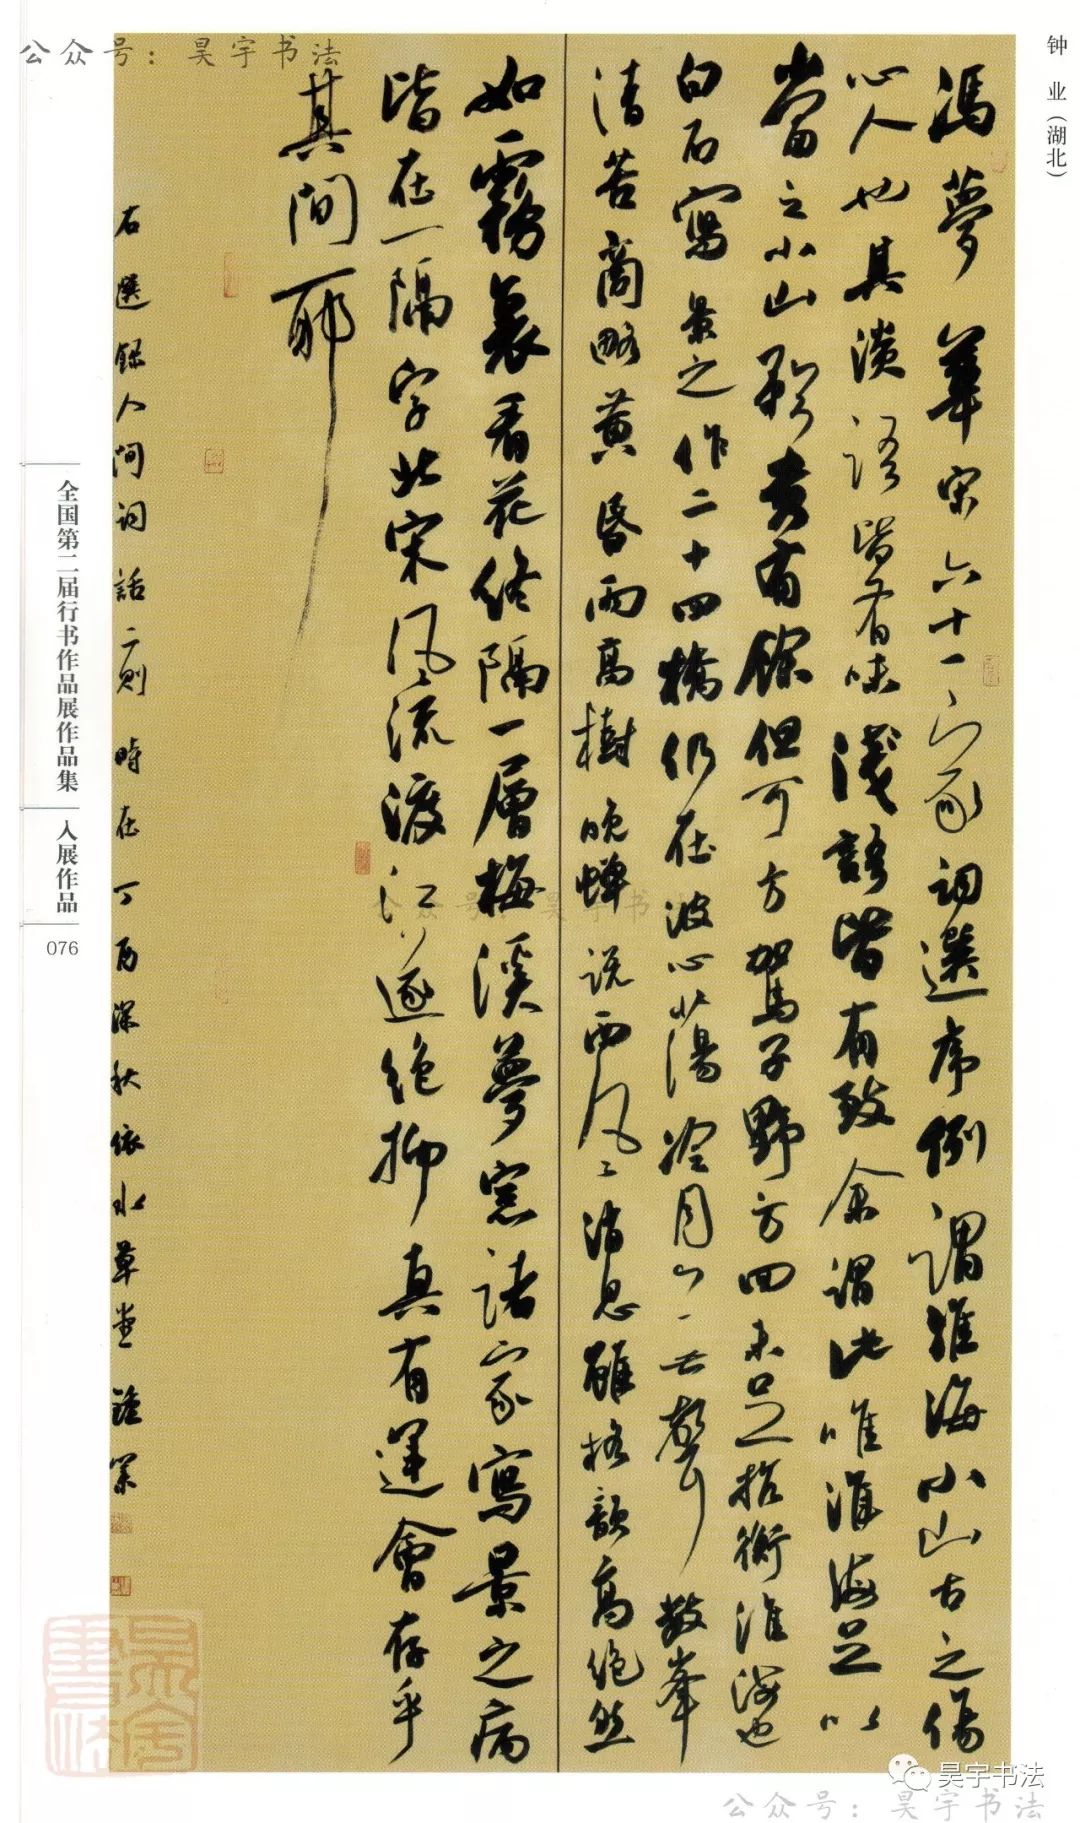 公众号：昊宇书法
钟业（湖北）
馮夢華宋六十一家詞選序例謂淮海小山古之傷
心人也其淡語皆有味淺語皆有致余謂此唯淮海足以
當之小山矜貴有餘但可方駕子野方回未足抗衡淮海也
白石寫景之作二十四橋仍在波心蕩冷月無聲數峯
清苦商略黄昏雨高樹晚蟬説西風消息雖格韻高絶然
如霧裏看花終隔一層梅溪夢窓諸家寫景之病
皆在一隔字北宋風流渡江遂絶抑真有運會存乎
其間耶
右選録人間詞話二則時在丁酉深秋依水草堂鍾業
全国第二届行书作品展作品集
入展作品
076
公众号：昊宇书法
昊宇书法
公众号：昊宇书法